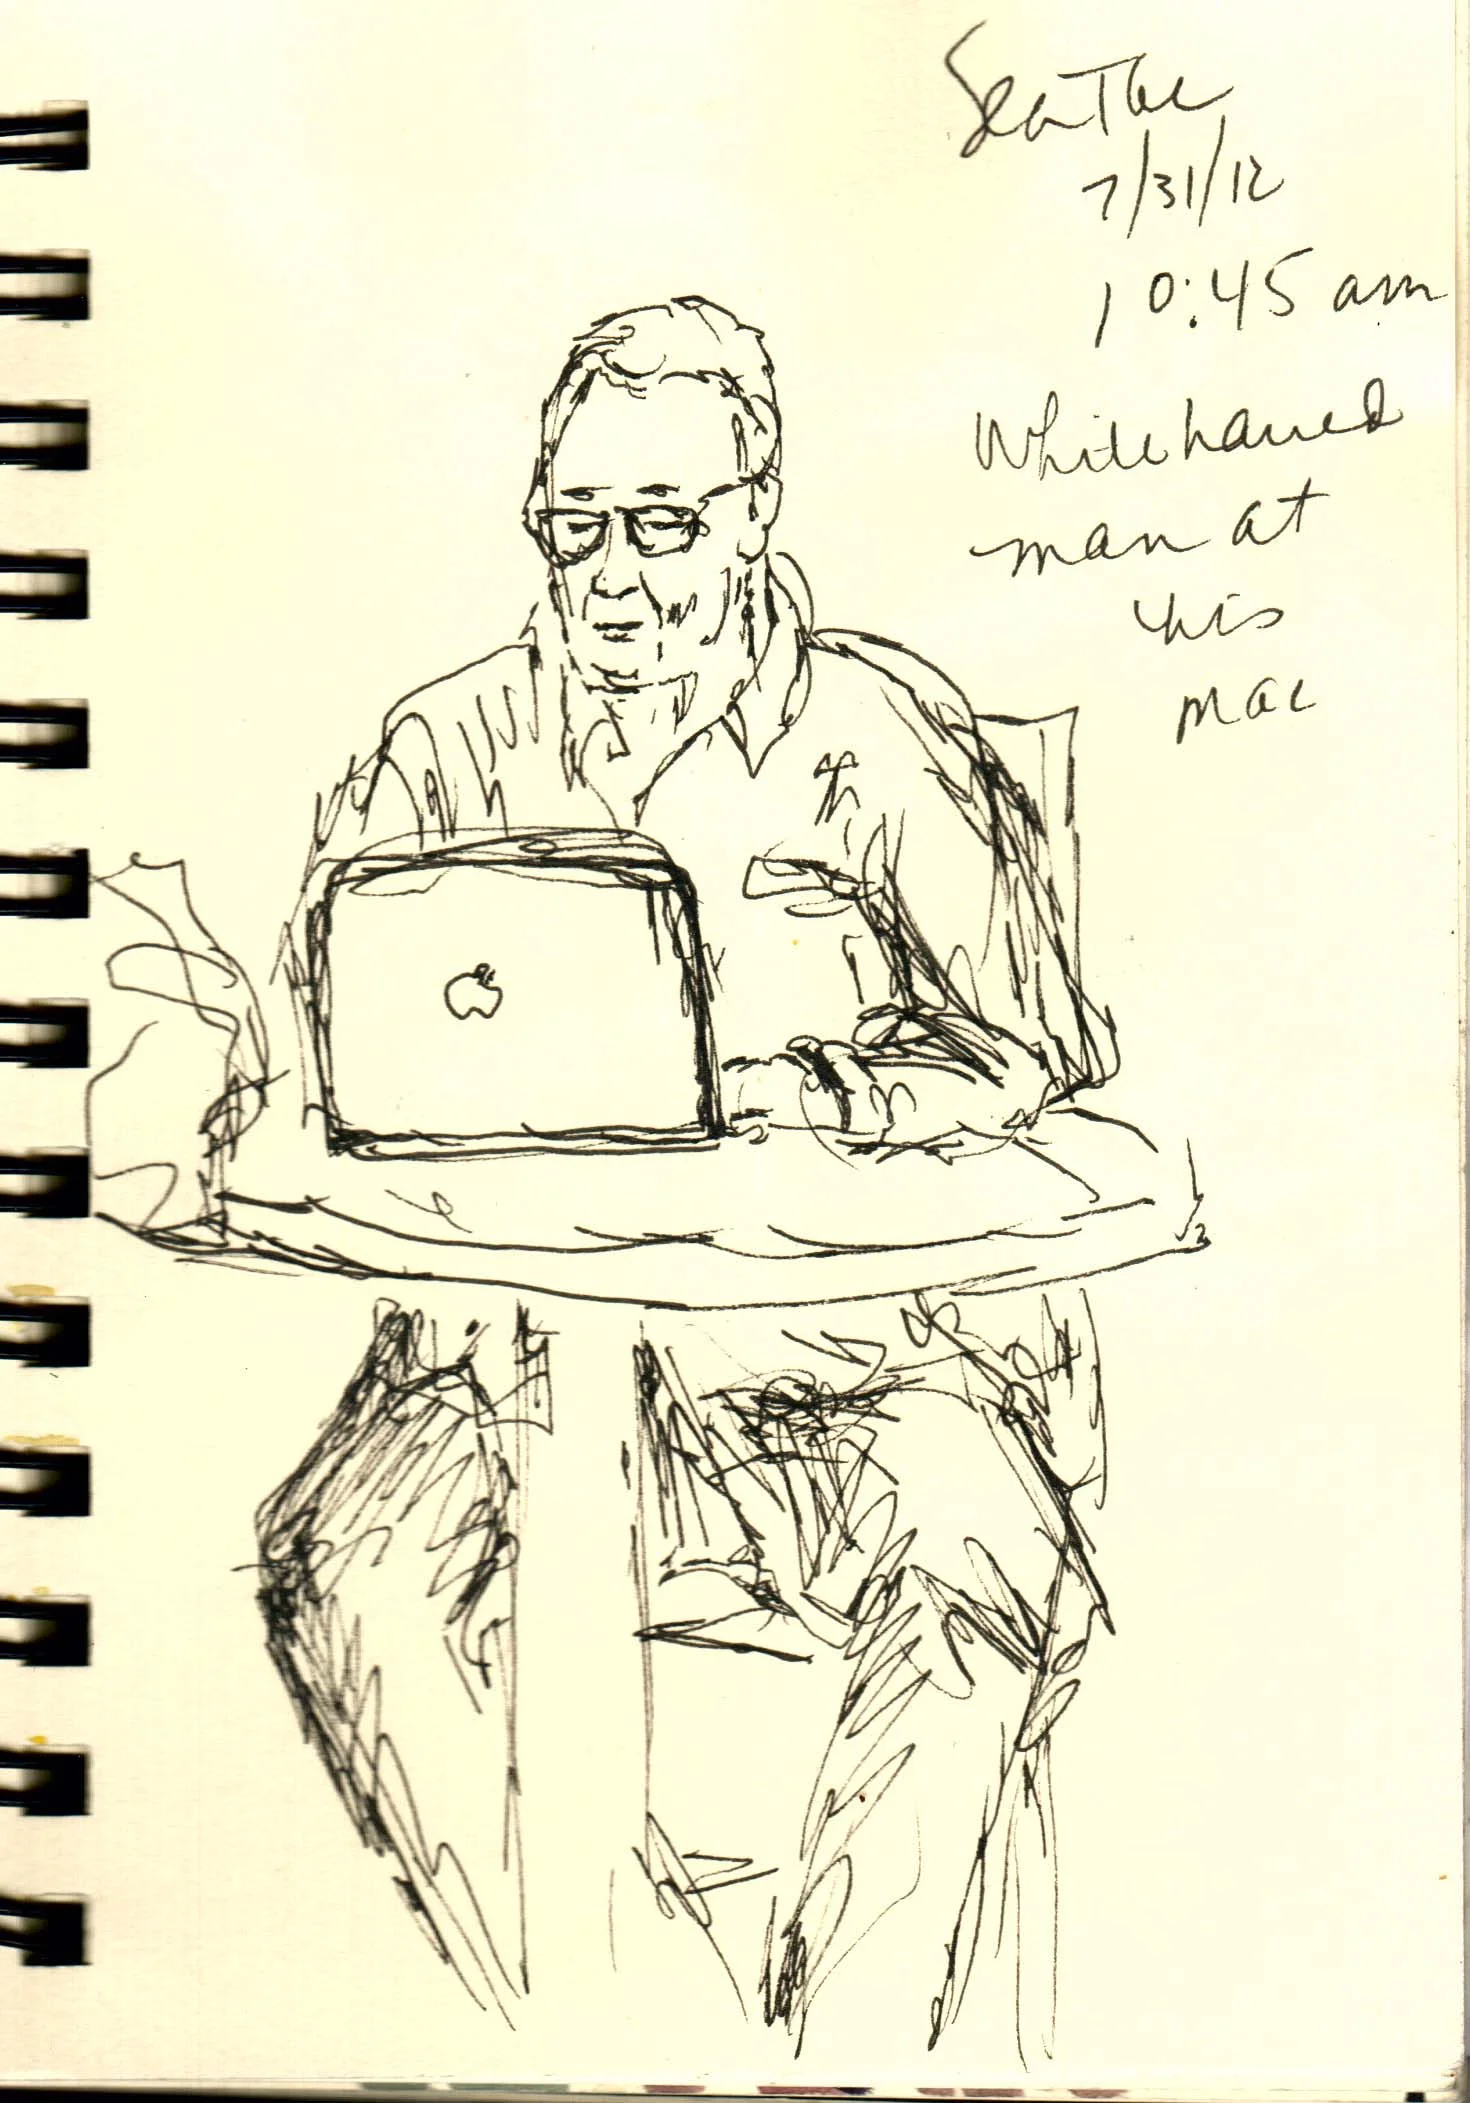 Seattle
7/31/12
10:45 am
White haired
man at
his
mac